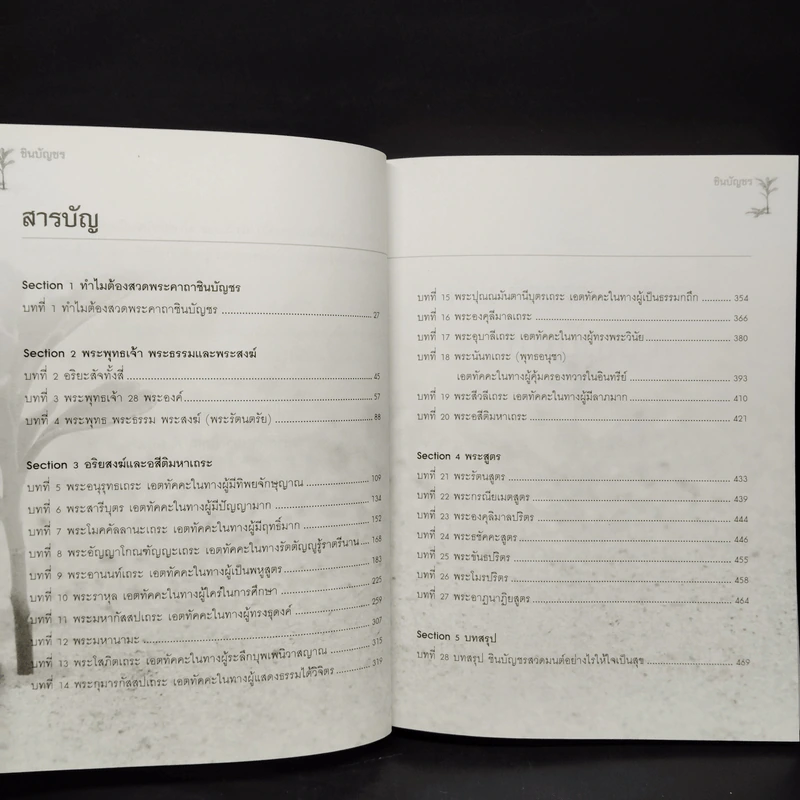 ชินบัญชร
สารบัญ
Section 1 ทำไมต้องสวดพระคาถาชินบัญชร
บทที่ 1 ทำไมต้องสวดพระคาถาชินบัญชร 27
Section 2 พระพุทธเจ้า พระธรรมและพระสงฆ์
บทที่ 2 อริยะสัจทั้งสี่ 45
บทที่ 3 พระพุทธเจ้า 28 พระองค์ 57
บทที่ 4 พระพุทธ พระธรรม พระสงฆ์ (พระรัตนตรัย) 88
Section 3 อริยสงฆ์และอสีติมหาเถระ
บทที่ 5 พระอนุรุทธเถระ เอตทัคคะในทางผู้มีทิพยจักษุญาณ 109
บทที่ 6 พระสารีบุตร เอตทัคคะในทางผู้มีปัญญามาก 134
บทที่ 7 พระโมคคัลลานะเถระ เอตทัคคะในทางผู้มีฤทธิ์มาก 152
บทที่ 8 พระอัญญาโกณฑัญญะเถระ เอตทัคคะในทางรัตตัญญูรู้ราตรีนาน 168
บทที่ 9 พระอานนท์เถระ เอตทัคคะในทางผู้เป็นพหูสูตร 183
บทที่ 10 พระราหุล เอตทัคคะในทางผู้ใคร่ในการศึกษา 225
บทที่ 11 พระมหากัสสปเถระ เอตทัคคะในทางผู้ทรงธุดงค์ 259
บทที่ 12 พระมหานามะ 307
บทที่ 13 พระโสภิตเถระ เอตทัคคะในทางผู้ระลึกบุพเพนิวาสญาณ 315
บทที่ 14 พระกุมารกัสสปเถระ เอตทัคคะในทางผู้แสดงธรรมได้วิจิตร 319
ชินบัญชร
บทที่ 15 พระปุณณมันตานีบุตรเถระ เอตทัคคะในทางผู้เป็นธรรมกถึก 354
บทที่ 16 พระองคุลีมาลเถระ 366
บทที่ 17 พระอุบาลีเถระ เอตทัคคะในทางผู้ทรงพระวินัย 380
บทที่ 18 พระนันทเถระ (พุทธอนุชา)
เอตทัคคะในทางผู้คุ้มครองทวารในอินทรีย์ 393
บทที่ 19 พระสีวลีเถระ เอตทัคคะในทางผู้มีลาภมาก 410
บทที่ 20 พระอสีติมหาเถระ 421
Section 4 พระสูตร
บทที่ 21 พระรัตนสูตร 433
บทที่ 22 พระกรณียเมตสูตร 439
บทที่ 23 พระองคุลิมาลปริตร 444
บทที่ 24 พระธชัคคะสูตร 446
บทที่ 25 พระขันธปริตร 455
บทที่ 26 พระโมรปริตร 458
บทที่ 27 พระอาฏานาฏิยสูตร 464
Section 5 บทสรุป
บทที่ 28 บทสรุป ชินบัญชรสวดมนต์อย่างไรให้ใจเป็นสุข 469